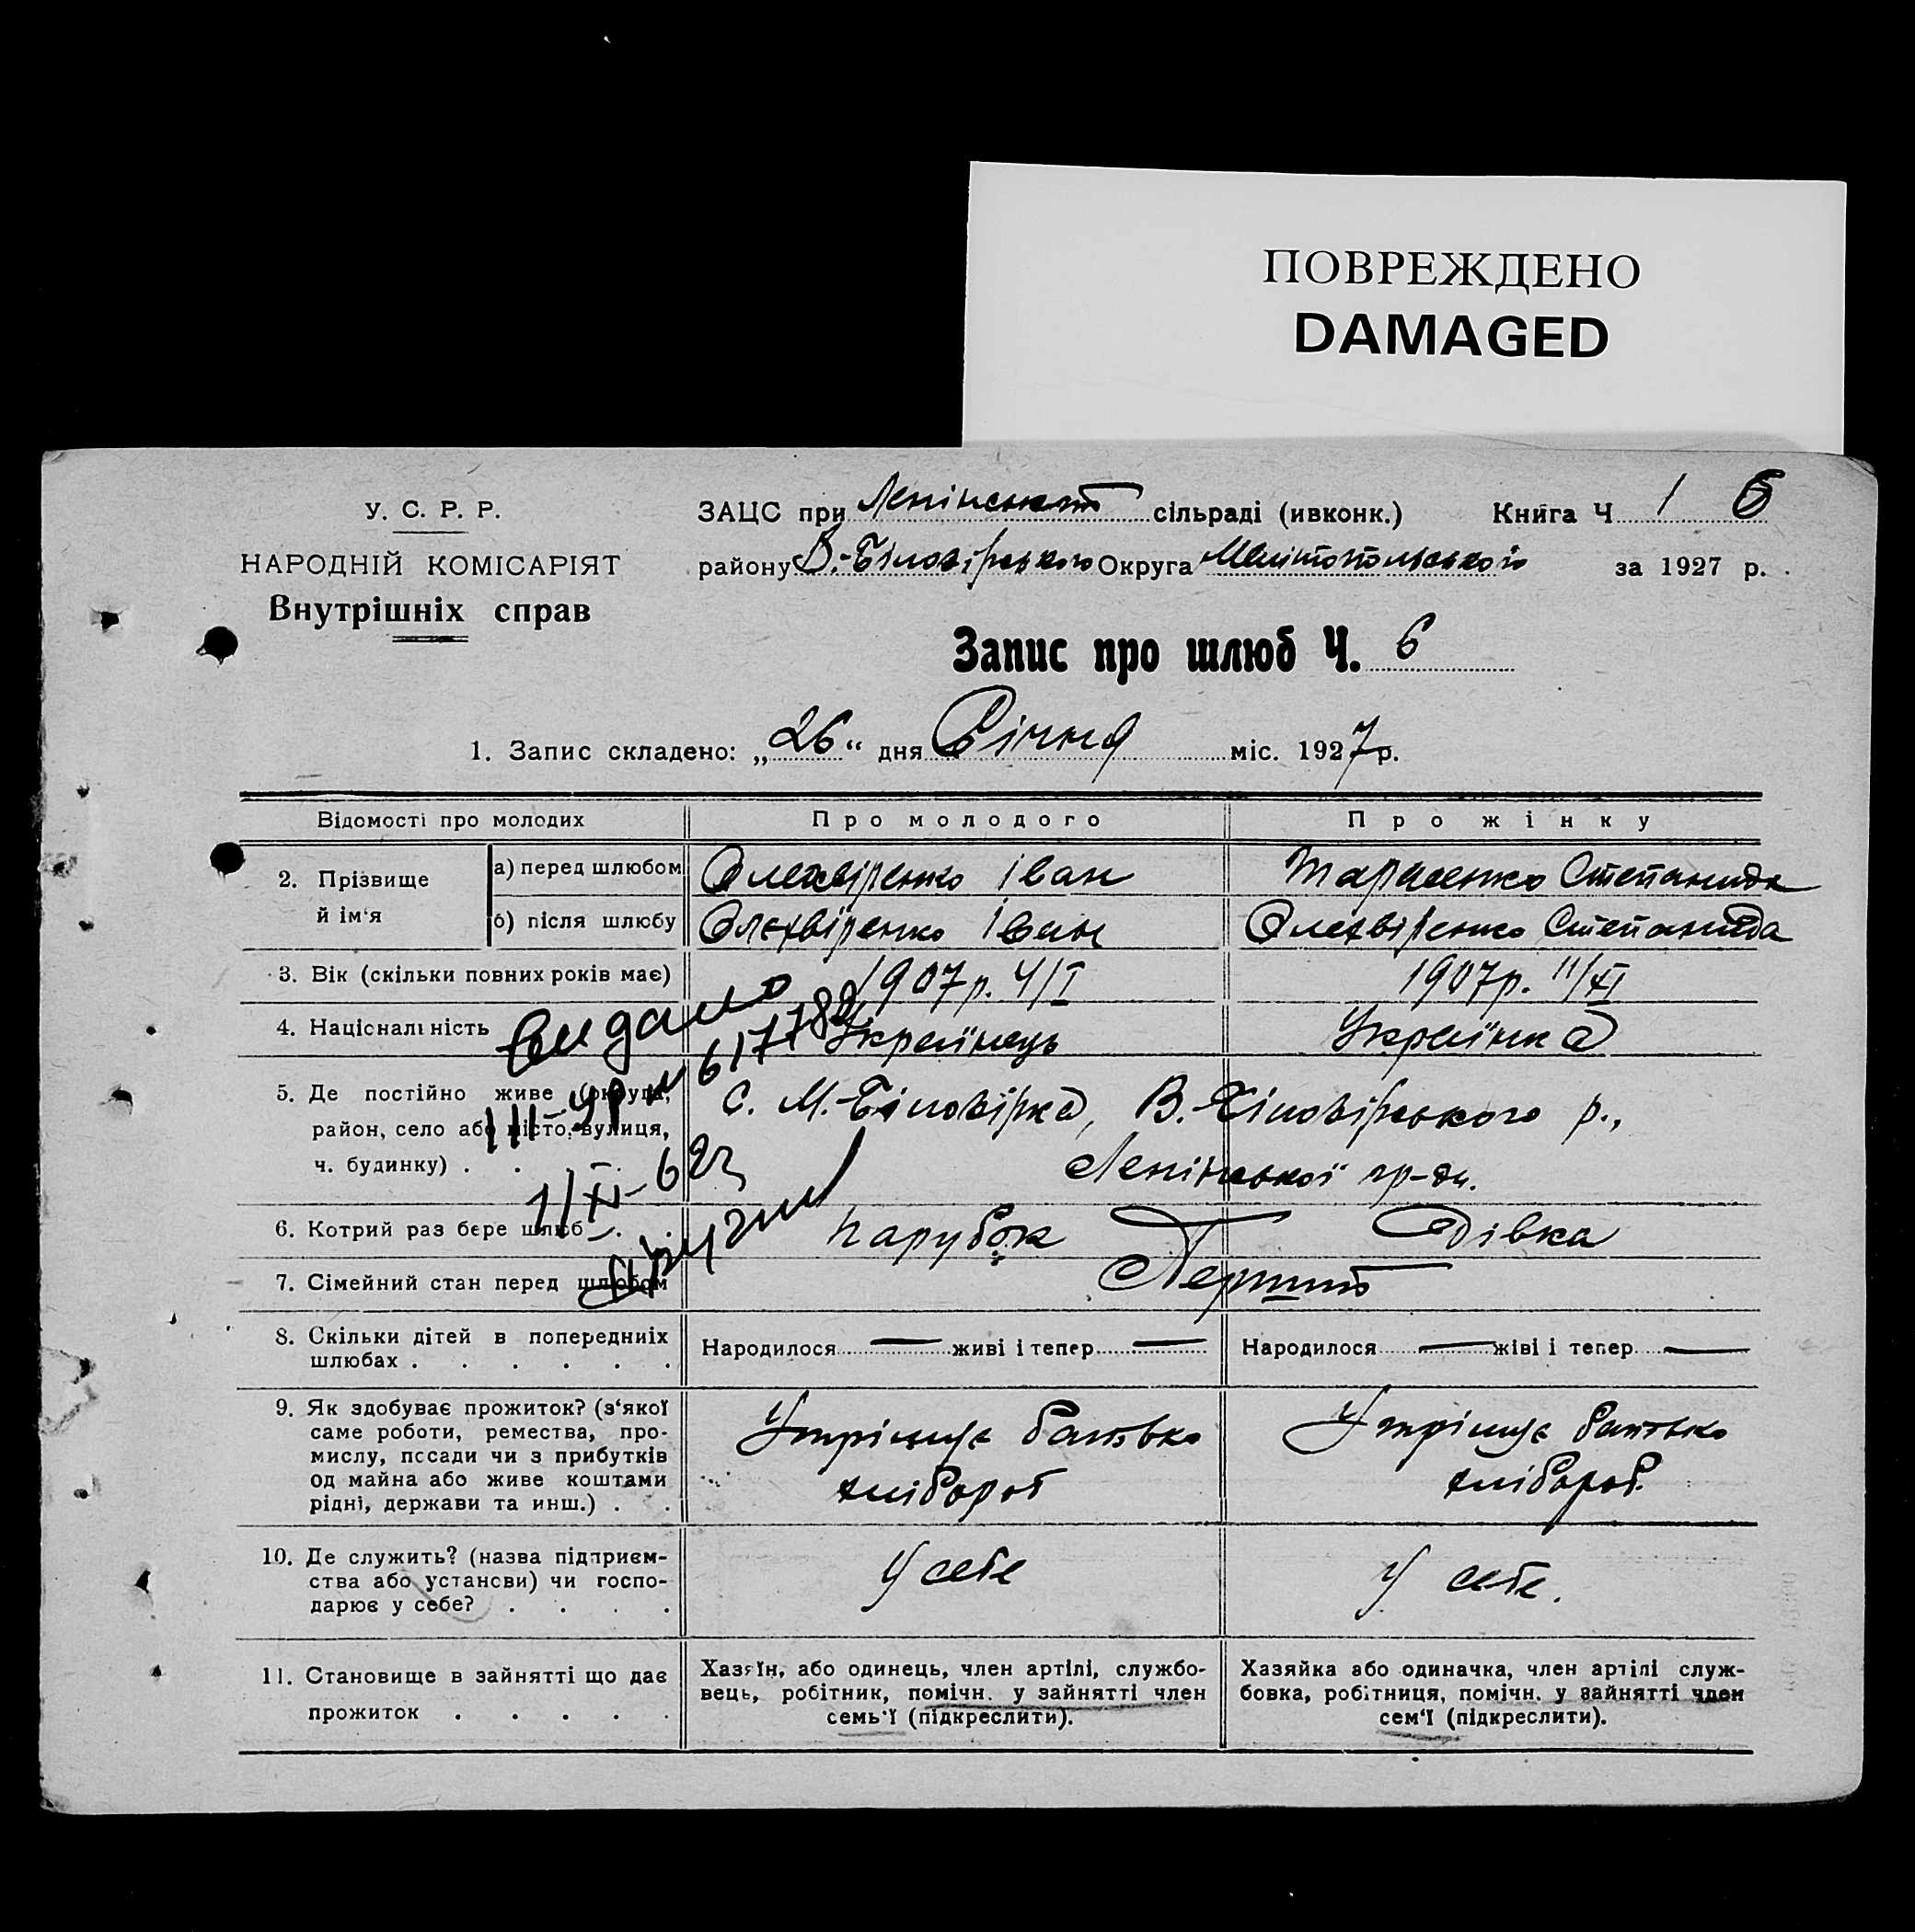 ПОВРЕЖДЕНО
DAMAGED
У. С. Р. Р.
НАРОДНІЙ КОМІСАРІЯТ
Внутрішніх справ
ЗАЦС при Ленінській сільраді (ивконк.) Книга Ч 1 6
району В.-Біловірського Округа Мелітопольського за 1927 р.
Запис про шлюб Ч. 6
1. Запис складено: „26“ дня Січня міс. 1927 р.
Відомості про молодих Про молодого Про жінку
2. Прізвище й ім‘я
а) перед шлюбом Олехвіренко Іван Тараненко Степанида
б) після шлюбу Олехвіренко Іван Олехвіренко Степанида
3. Вік (скільки повних років має) 1907 р. 4/I 1907 р. 11/XI
4. Національність Українець Українка
видано
III-УР № 617782
1/XI-62г
5. Де постійно живе (округа, район, село або місто, вулиця, ч. будинку) . С. М.-Біловірка, В.-Біловірського р.,
Ленінської гр-ди.
6. Котрий раз бере шлюб . . . Парубок Дівка
7. Сімейний стан перед шлюбом Перший
8. Скільки дітей в попередниіх шлюбах . . . . . . Народилося — живі і тепер — Народилося — жіві і тепер —
9. Як здобуває прожиток? (з‘якої
саме роботи, ремества, про-
мислу, посади чи з прибутків
од майна або живе коштами
рідні, держави та инш.) . .
Утрімує батько
хлібороб
Утрімує батько
хлібороб.
10. Де служить? (назва підприєм-
ства або установи) чи госпо-
дарює у себе? . . . .
У себе
У себе.
11. Становище в зайнятті що дає
прожиток . . . . .
Хазяїн, або одинець, член артілі, службо-
вець, робітник, помічн. у зайнятті член
семь‘ї (підкреслити).
Хазяйка або одиначка, член артілі служ-
бовка, робітниця, помічн. у зайнятті член
сем‘ї (підкреслити).